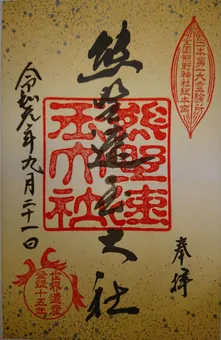 日本第一大霊験所
全国熊野神社総本宮
奉拝
熊野速玉大社
熊野速
玉大社
令和元年九月二十一日
世界遺産
登録十五周年